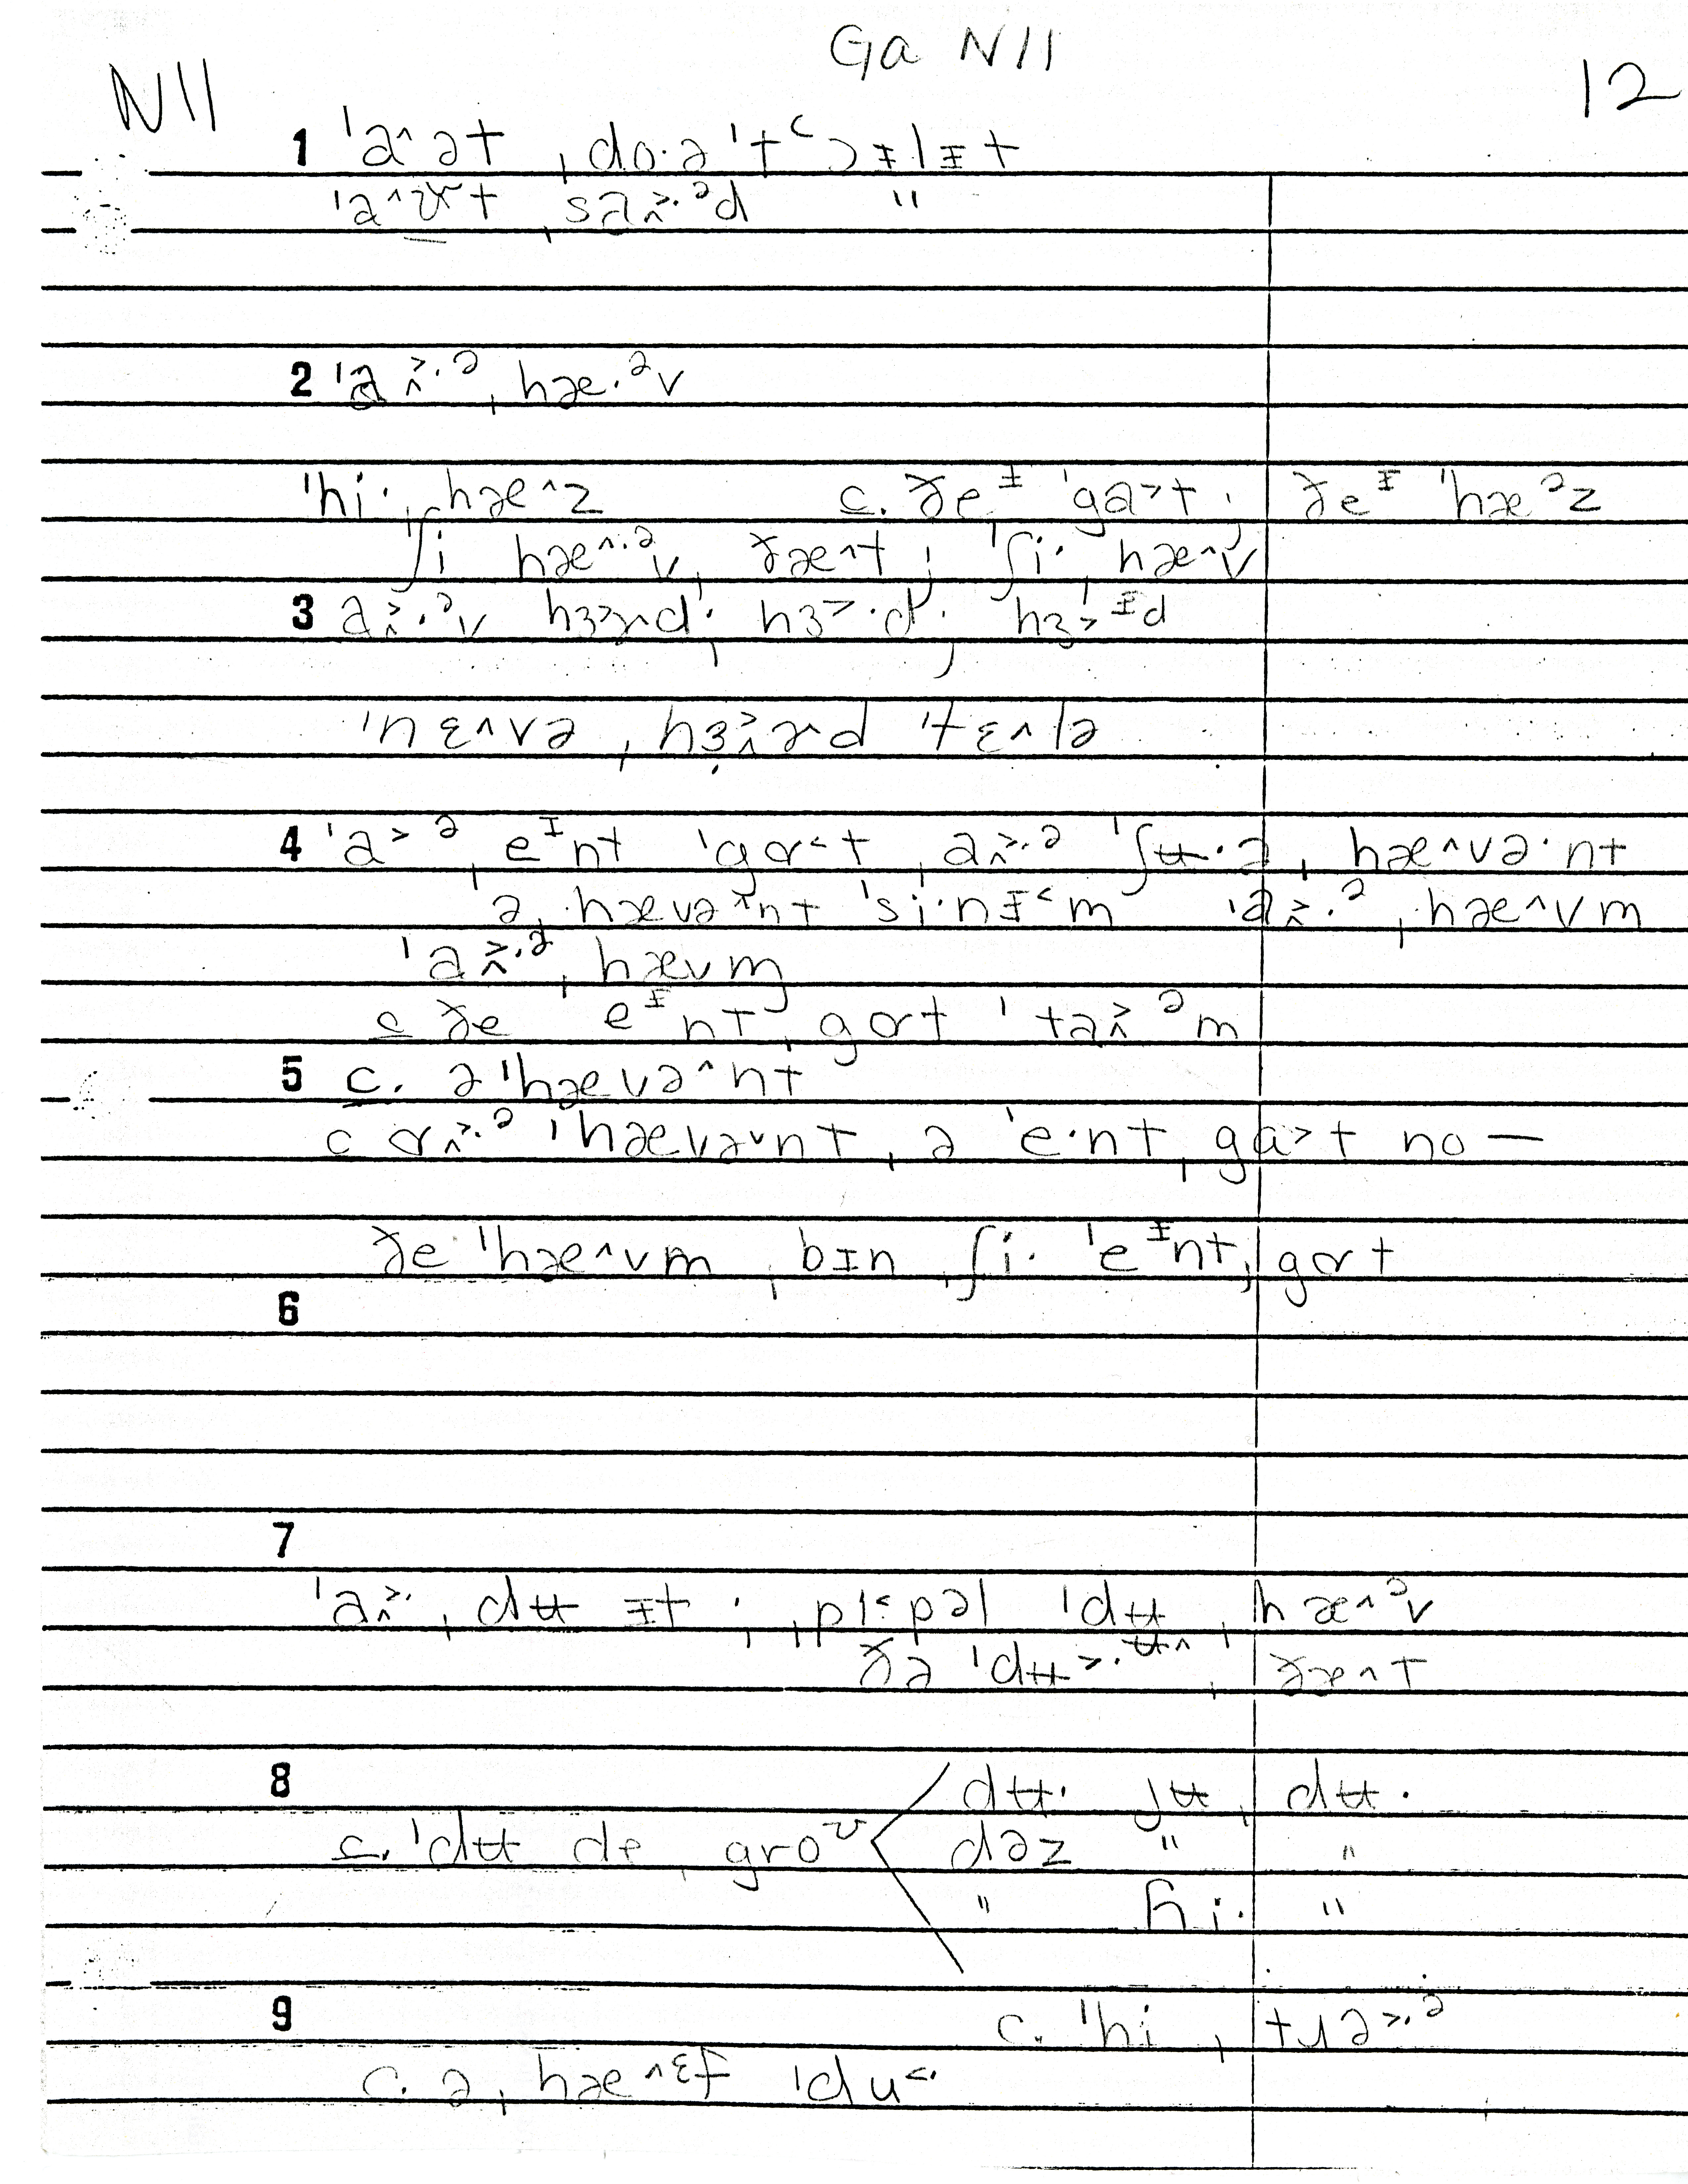 Ga N11
N11 12
1 ˈa^ət ˌdo·ə ˈt^cɔɪlɪt
sa ə d "
2 ˈa ə ˌhæ·ᵊv
ˈhi· ˌhæ^z c. ðeᶦ ˈga>t · ðeᶦ ˈhæᵊz
ʃi hæ^·ᵊv ˌðæ^t ; ˈʃi· ˌhæ^v
3 hɜ>·d· hɜ>ᶦd
ˈnɛ^və ˌhɜɚd ˈtɛ^lə
4 ˈa>ᵊ ˌeᶦnt ˈgɑ<t ˌa ᵊ ˈʃʉ·ə ˌhæ^və·nt
ə ˌhævə^nt ˈsi·nɪ<m ˈa ·ᵊ ˌhæ^vm
ˈa ·ᵊ ˌhævm
c ðe eᶦnt ˌgɑt ˈta ᵊm
5 c. ə ˈhævə^nt
c ɑ ·ᵊ ˈhævəˇnt ˌə ˈe·nt ˌga>t no —
ðe ˈhæ^vm ˌbɪn ʃi· ˈeᶦnt ˌgɑt
6
7
ˈa · ˌdʉ ɪt · ˌpi<pəl ˈdʉ ˌhæ^ᵊv
ðə ˈdʉ>·ʉ^ ˌðæ^t
8 dʉ· jʉ ˌdʉ·
c. ˈdʉ de ˌgroᶷ dəz " "
" hi· "
9 c. ˈhi ˌtɹə>·ᵊ
c. ə ˌhæ^ᵋf ˈdu<·